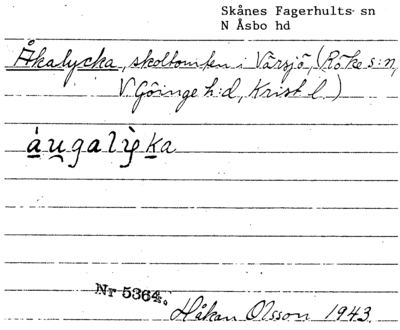 Skånes Fagerhults sn
N Åsbo hd
Åkalycka, skoltomten i Värsjö, (Röke s:n,
V. Göinge h:d, Krist l.)
áu̯galỳka
Nr 5364.
Håkan Olsson 1943.